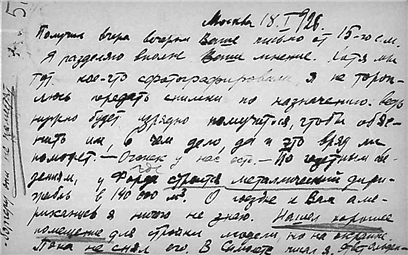 Москва 18.I.1926.
Получил вчера вечером Ваше письмо от 15-го см.
Я разделяю вполне Ваше мнение. Хотя мы
тут кое-что сфотографировали, я не тороп-
люсь передать снимки по назначению. Ведь
нужно будет изрядно помучится, чтобы объяс-
нить им, в чем дело, да и это вряд ли
поможет. — Огонек у нас есть. — По газетным све-
дениям, у Форда строится металлический дири-
жабль в 140 000 м³. О поездке к Вам аме-
риканцев я ничего не знаю. Нашел хорошее
помещение для стройки модели но на окраине
Пока не снял его. В